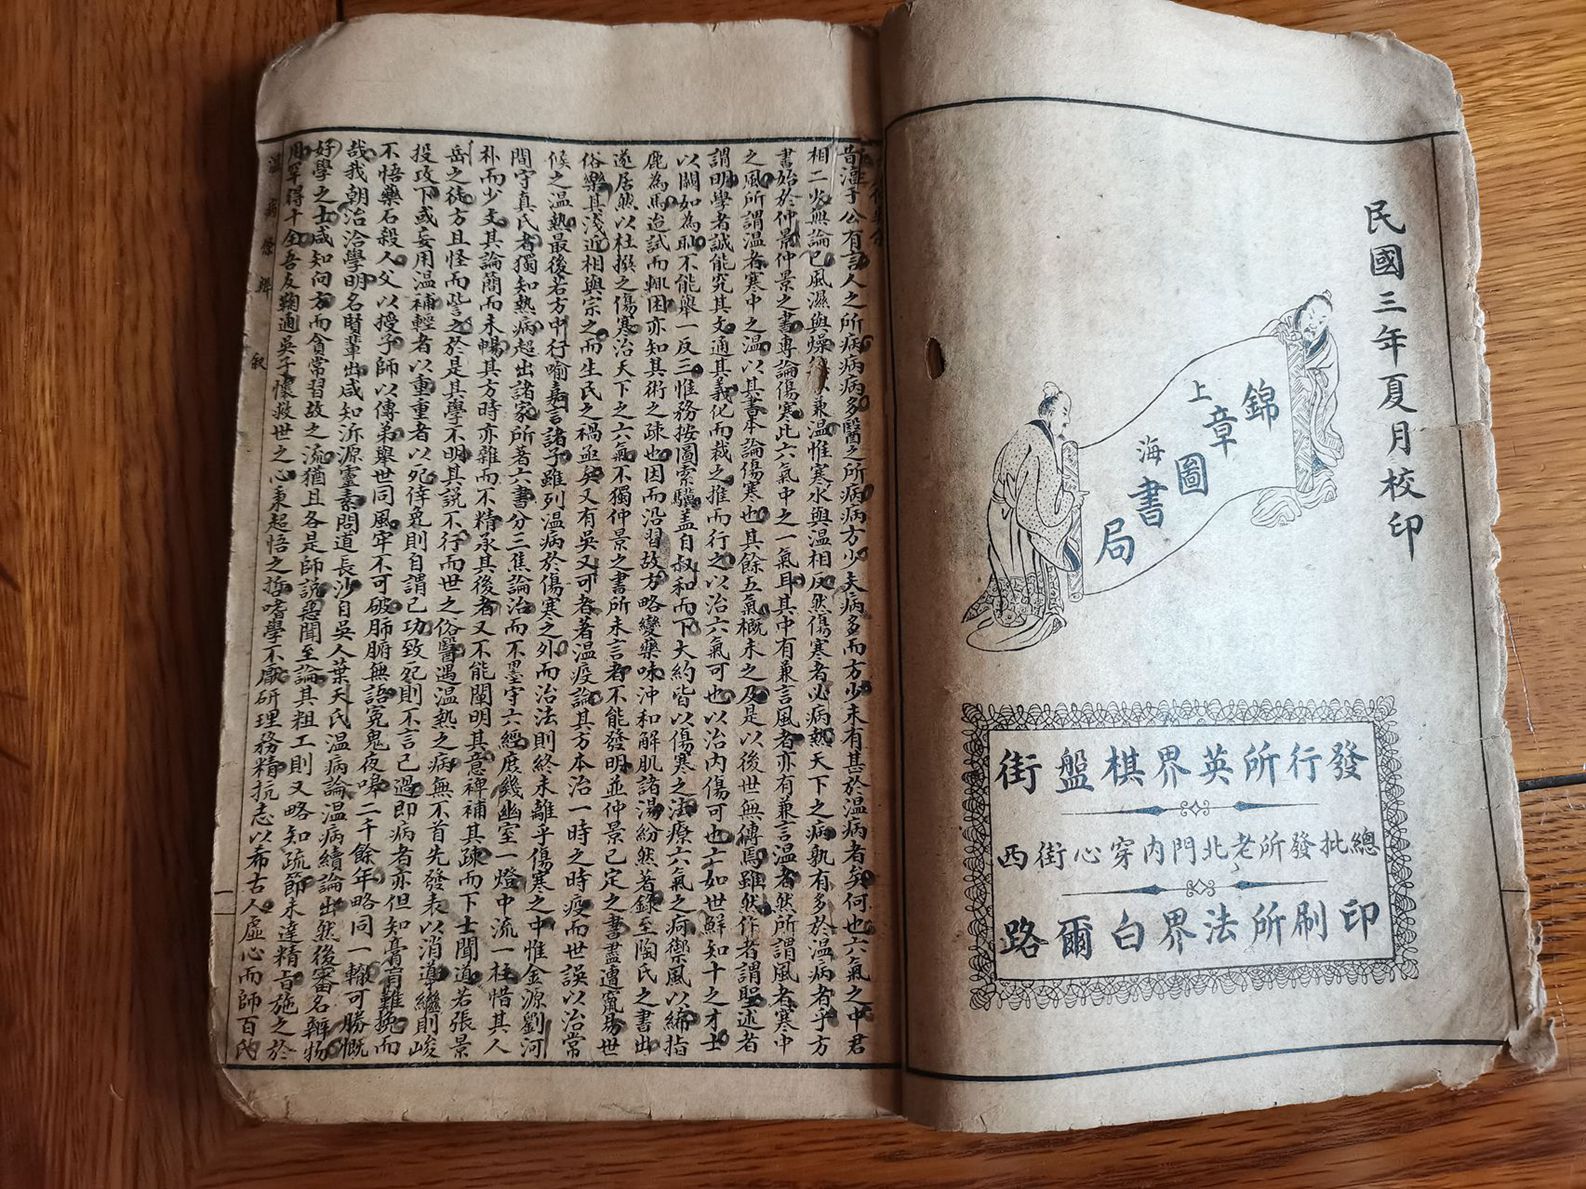 民國三年夏月校印
上海
錦章圖書局
發行所英界棋盤街
總批發所老北門內穿心街西
印刷所法界白爾路
昔淳于公有言人之所病病病多醫之所病病方少夫病多而方少未有甚於溫病者矣何也六氣之中君
相二火無論已風濕與燥無不兼溫惟寒水與溫相反然傷寒者必病熱天下之病孰有多於溫病者乎方
書始於仲景仲景之書專論傷寒此六氣中之一氣耳其中有兼言風者亦有兼言溫者然所謂風者寒中
之風所謂溫者寒中之溫以其書本論傷寒也其餘五氣概未之及是以後世無傳焉雖然作者謂聖述者
謂明學者誠能究其文通其義化而裁之推而行之以治六氣可也以治內傷可也亡如世鮮知十之才士
以闕如為恥不能舉一反三惟務按圖索驥蓋自叔和而下大約皆以傷寒之法療六氣之疴禦風以絺指
鹿為馬迨試而輒困亦知其術之疎也因而沿習故方略變藥味沖和解肌諸湯紛然著錄至陶氏之書出
遂居然以杜撰之傷寒治天下之六氣不獨仲景之書所未言者不能發明並仲景已定之書盡遭竄易世
俗樂其淺近相與宗之而生民之禍亟矣又有吳又可者著溫疫論其方本治一時之時疫而世誤以治常
候之溫熱最後若方中行喻嘉言諸子雖列溫病於傷寒之外而治法則終未離乎傷寒之中惟金源劉河
間守真氏者獨知熱病超出諸家所著六書分三焦論治而不墨守六經庶幾幽室一燈中流一柱惜其人
朴而少文其論簡而未暢其方時亦雜而不精承其後者又不能闡明其意裨補其疎而下士聞道若張景
岳之徒方且怪而訾之於是其學不明其說不行而世之俗醫遇溫熱之病無不首先發表以消導繼則峻
投攻下或妄用溫補輕者以重重者以死倖免則自謂己功致死則不言己過即病者亦但知膏肓難挽而
不悟藥石殺人父以授子師以傳弟舉世同風牢不可破肺腑無語冤鬼夜嘷二千餘年略同一轍可勝慨
哉我朝治洽學明名賢輩出咸知泝源靈素問道長沙自吳人葉天氏溫病論溫病續論出然後當名辨物
好學之士咸知向方而貪常習故之流猶且各是師說惡聞至論其粗工則又略知疏節未達精旨施之於
用罕得十全吾友鞠通吳子懷救世之心秉超悟之哲嗜學不厭研理務精抗志以希古人虛心而師百氏
溫病條辨 叙 一